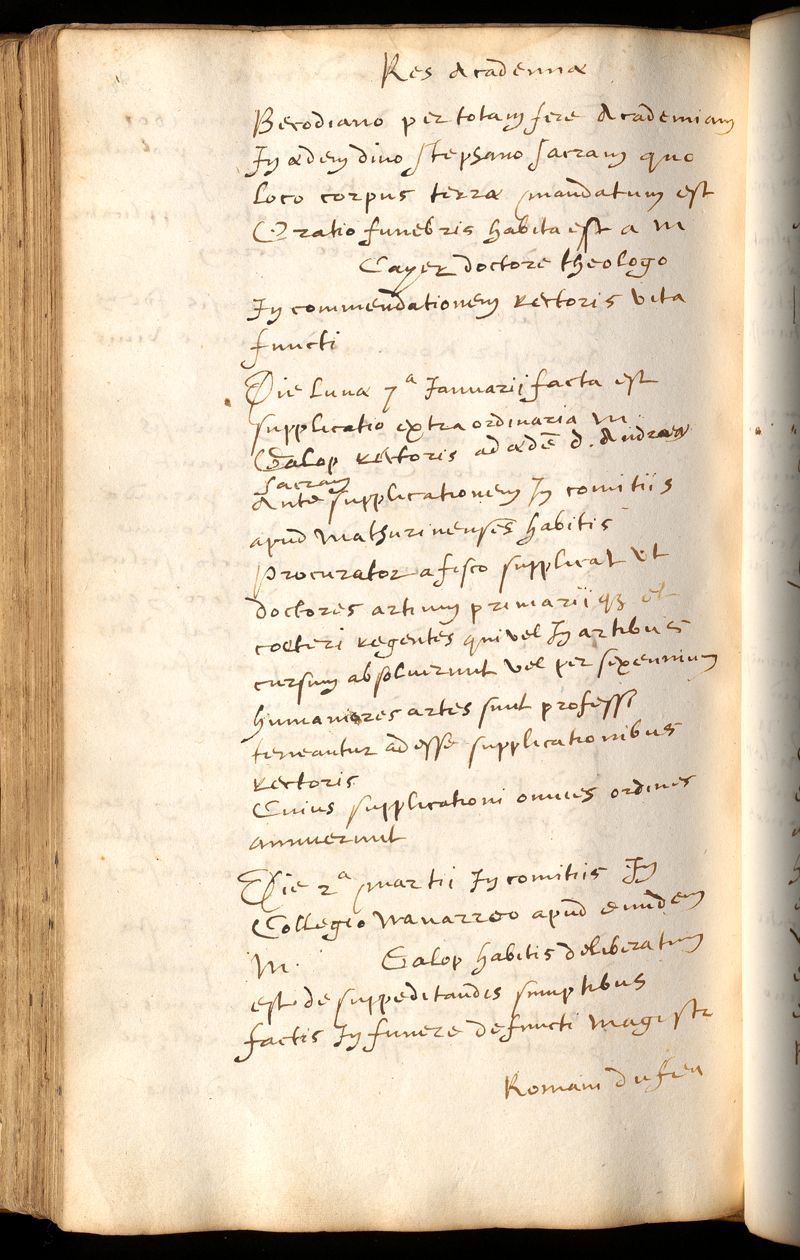 Res Academiæ
Becodiano per totam fere Academiam
In ædem divo stephano sacram quo
loco corpus terræ mandatum est
Oratio funebris habita est a M
Cayer doctore theologo
In commendationem Rectoris vita
functi
Die Lunæ 7ª Januarij facta est
supplicatio extraordinaria M.
Galop Rectoris ad ædē d. Andreæ
sacram
Ante supplicationem In comitiis
apud Mathurinenses habitis
Procurator a fisco supplicat ut
doctores artium primarii qꝫ et
cœteri regentes qui vel In artibus
cursum absolverunt vel per sexennium
humaniores artes sunt professi
teneantur adesse supplicationibus
Rectoris
Cuius supplicationi omnes ordines
annuerunt
Die 2ª Martii In comitiis In
Collegio Navarreo apud eundem
M. Galop habitis deliberatum
est de suppeditandis sumptibus
factis In funere defuncti Magistr
Romani